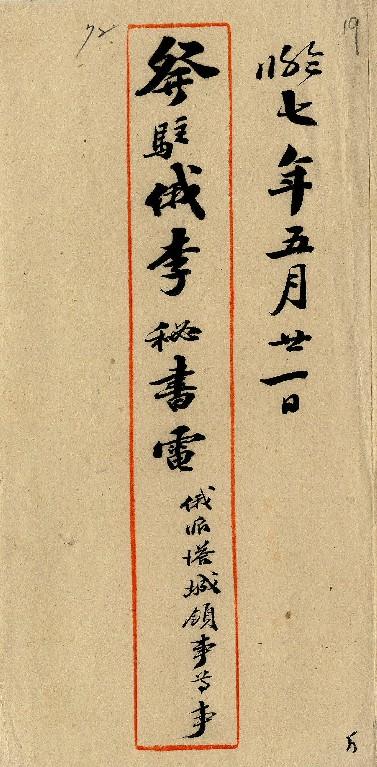 19
七年五月廿一日
發駐俄李秘書電
俄派塔城領事等事
72